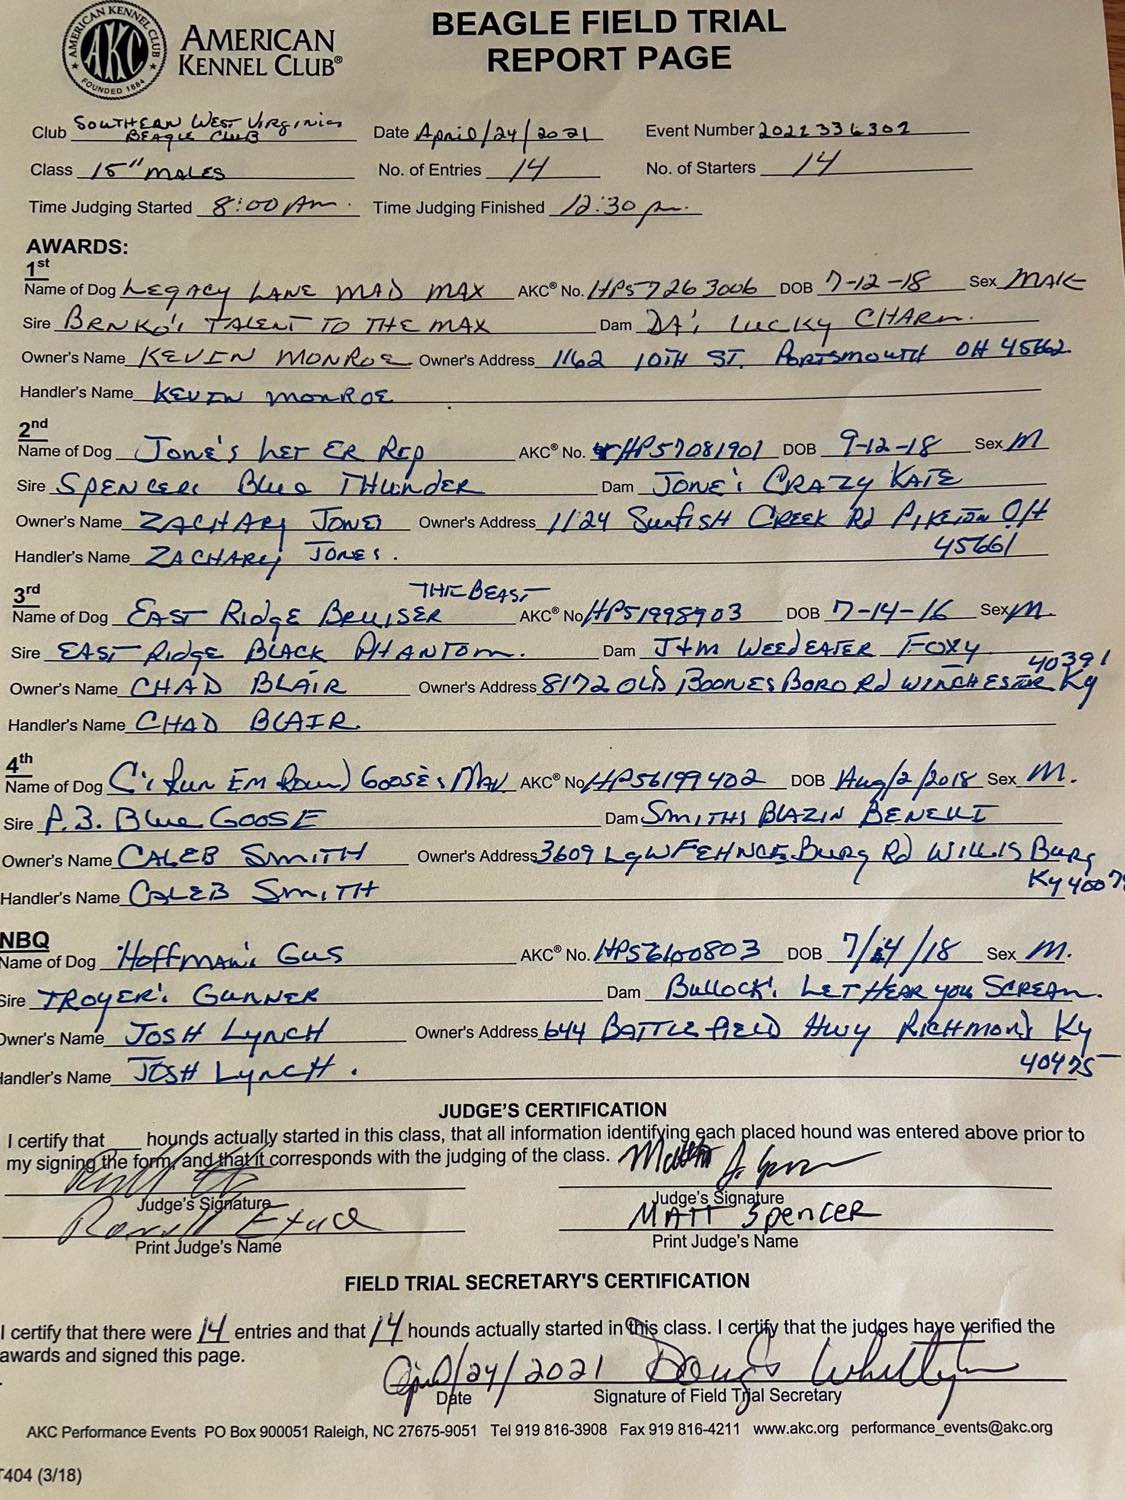 AMERICAN KENNEL CLUB
AKC
FOUNDED 1884
AMERICAN
KENNEL CLUB®
BEAGLE FIELD TRIAL
REPORT PAGE
Club SOUTHERN WEST VIRGINIA BEAGLE CLUB Date April/24/2021 Event Number 2021336302
Class 15" MALES No. of Entries 14 No. of Starters 14
Time Judging Started 8:00 Am. Time Judging Finished 12:30 pm.
AWARDS:
1st
Name of Dog LEGACY LANE MAD MAX AKC® No. HP57263006 DOB 7-12-18 Sex MALE
Sire BRNKO'S TALENT TO THE MAX Dam DA'S LUCKY CHARM.
Owner's Name KEVIN MONROE Owner's Address 1162 10TH ST. PORTSMOUTH OH 45662
Handler's Name KEVIN MONROE
2nd
Name of Dog JONE'S LET ER REP AKC® No. HP57081901 DOB 9-12-18 Sex M
Sire SPENCERS Blue THUNDER Dam JONE'S CRAZY KATE
Owner's Name ZACHARY JONES Owner's Address 1124 SunfISH CREEK Rd PIKETON OH
45661
Handler's Name ZACHARY JONES.
3rd
THE BEAST
Name of Dog EAST RIdgE BRUISER AKC® No HP51998903 DOB 7-14-16 Sex M.
Sire EAST RIdgE BLACK PHANTOM. Dam J+M WEEDEATER FOXY
40391
Owner's Name CHAD BLAIR Owner's Address 8172 OLD BOONESBORO Rd WINCHESTER Ky
Handler's Name CHAD BLAIR.
4th
Name of Dog C's Run EM Round GOOSE's MAV AKC® No HP56199402 DOB Aug/2/2018 Sex M.
Sire P.B. Blue GOOSE Dam SMITHS BLAZIN BENELLI
Owner's Name CALEB SMITH Owner's Address 3609 Rd WILLIS Burg
Ky 4007
Handler's Name CALEB SMITH
NBQ
Name of Dog Hoffman's Gus AKC® No. HP56100803 DOB 7/14/18 Sex M.
Sire TROYER'S GUNNER Dam Bullock's LET HEAR you SCREAM.
Owner's Name JOSH LYNCH Owner's Address 644 BATTLEfIELD Hwy RICHMOND Ky
40475
Handler's Name JOSH LyncH.
JUDGE'S CERTIFICATION
I certify that ___ hounds actually started in this class, that all information identifying each placed hound was entered above prior to
my signing the form, and that it corresponds with the judging of the class.
Judge's Signature Judge's Signature
MATT SpENCER
Print Judge's Name Print Judge's Name
FIELD TRIAL SECRETARY'S CERTIFICATION
I certify that there were 14 entries and that 14 hounds actually started in this class. I certify that the judges have verified the
awards and signed this page.
April/24/2021
Date Signature of Field Trial Secretary
AKC Performance Events PO Box 900051 Raleigh, NC 27675-9051 Tel 919 816-3908 Fax 919 816-4211 www.akc.org performance_events@akc.org
T404 (3/18)